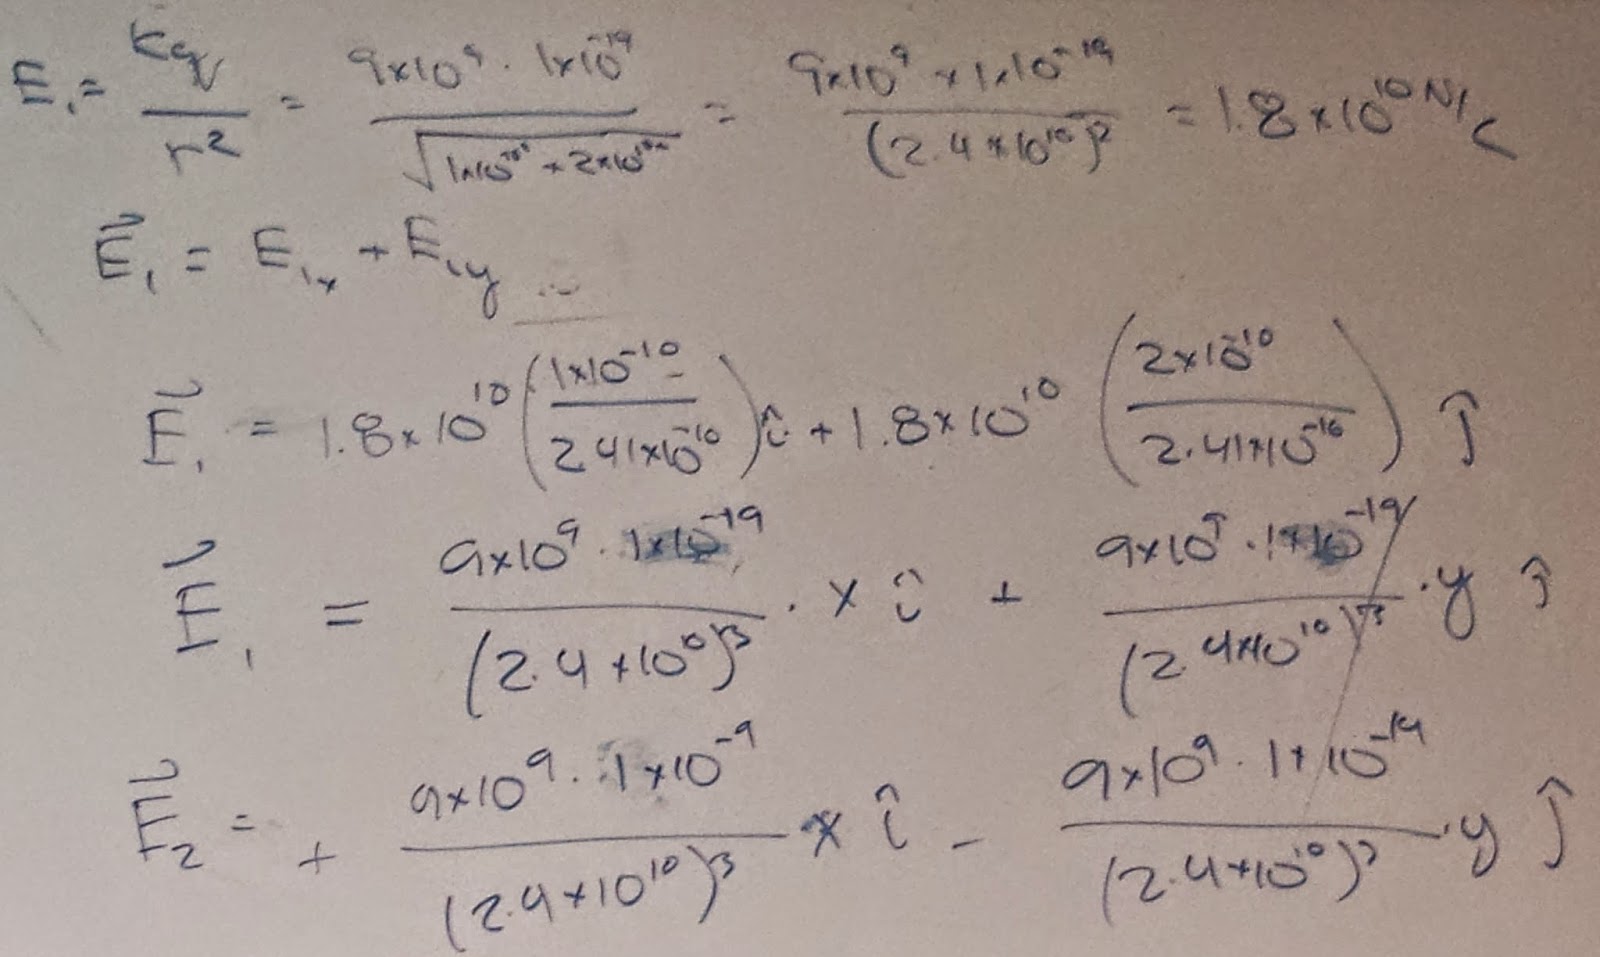 E₁ = Kq / r² = 9x10⁹ · 1x10⁻¹⁹ / √(1x10⁻¹⁰ + 2x10⁻¹⁰) = 9x10⁹ x 1x10⁻¹⁹ / (2.4x10¹⁰)² = 1.8x10¹⁰ N/C
E⃗₁ = E₁ₓ + E₁y
E⃗₁ = 1.8x10¹⁰ (1x10⁻¹⁰ / 2.41x10⁻¹⁰) î + 1.8x10¹⁰ (2x10⁻¹⁰ / 2.41x10⁻¹⁰) ĵ
E⃗₁ = 9x10⁹ · 1x10⁻¹⁹ / (2.4x10¹⁰)³ · x î + 9x10⁹ · 1x10⁻¹⁹ / (2.4x10¹⁰)³ · y ĵ
E⃗₂ = + 9x10⁹ · 1x10⁻⁹ / (2.4x10¹⁰)³ x î - 9x10⁹ · 1x10⁻¹⁹ / (2.4x10¹⁰)³ · y ĵ